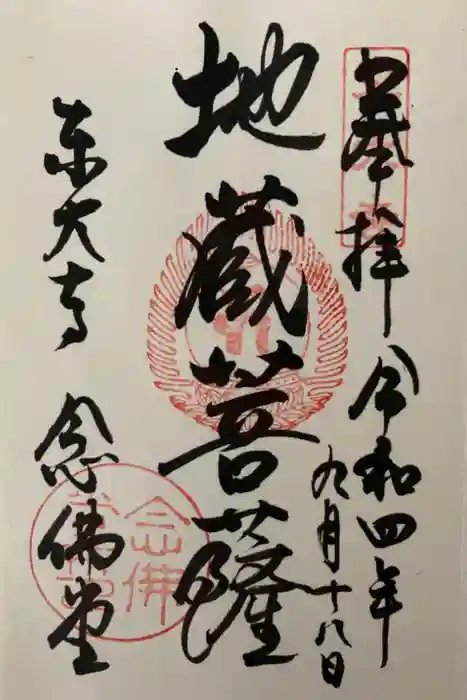 奉拝 令和四年
九月十八日
地蔵菩薩
東大寺 念佛堂
念佛